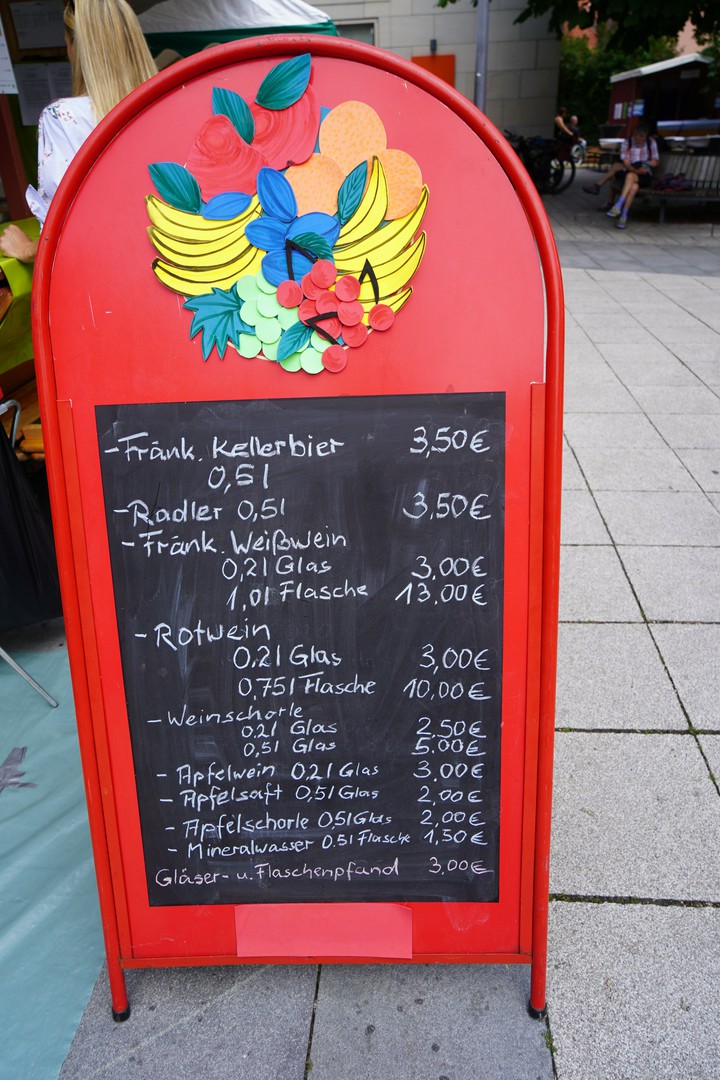 - Fränk. Kellerbier 3,50€
0,5l
- Radler 0,5l 3,50€
- Fränk. Weißwein
0,2l Glas 3,00€
1,0l Flasche 13,00€
- Rotwein
0,2l Glas 3,00€
0,75l Flasche 10,00€
- Weinschorle
0,2l Glas 2,50€
0,5l Glas 5,00€
- Apfelwein 0,2l Glas 3,00€
- Apfelsaft 0,5l Glas 2,00€
- Apfelschorle 0,5l Glas 2,00€
- Mineralwasser 0,5l Flasche 1,50€
Gläser- u. Flaschenpfand 3,00€